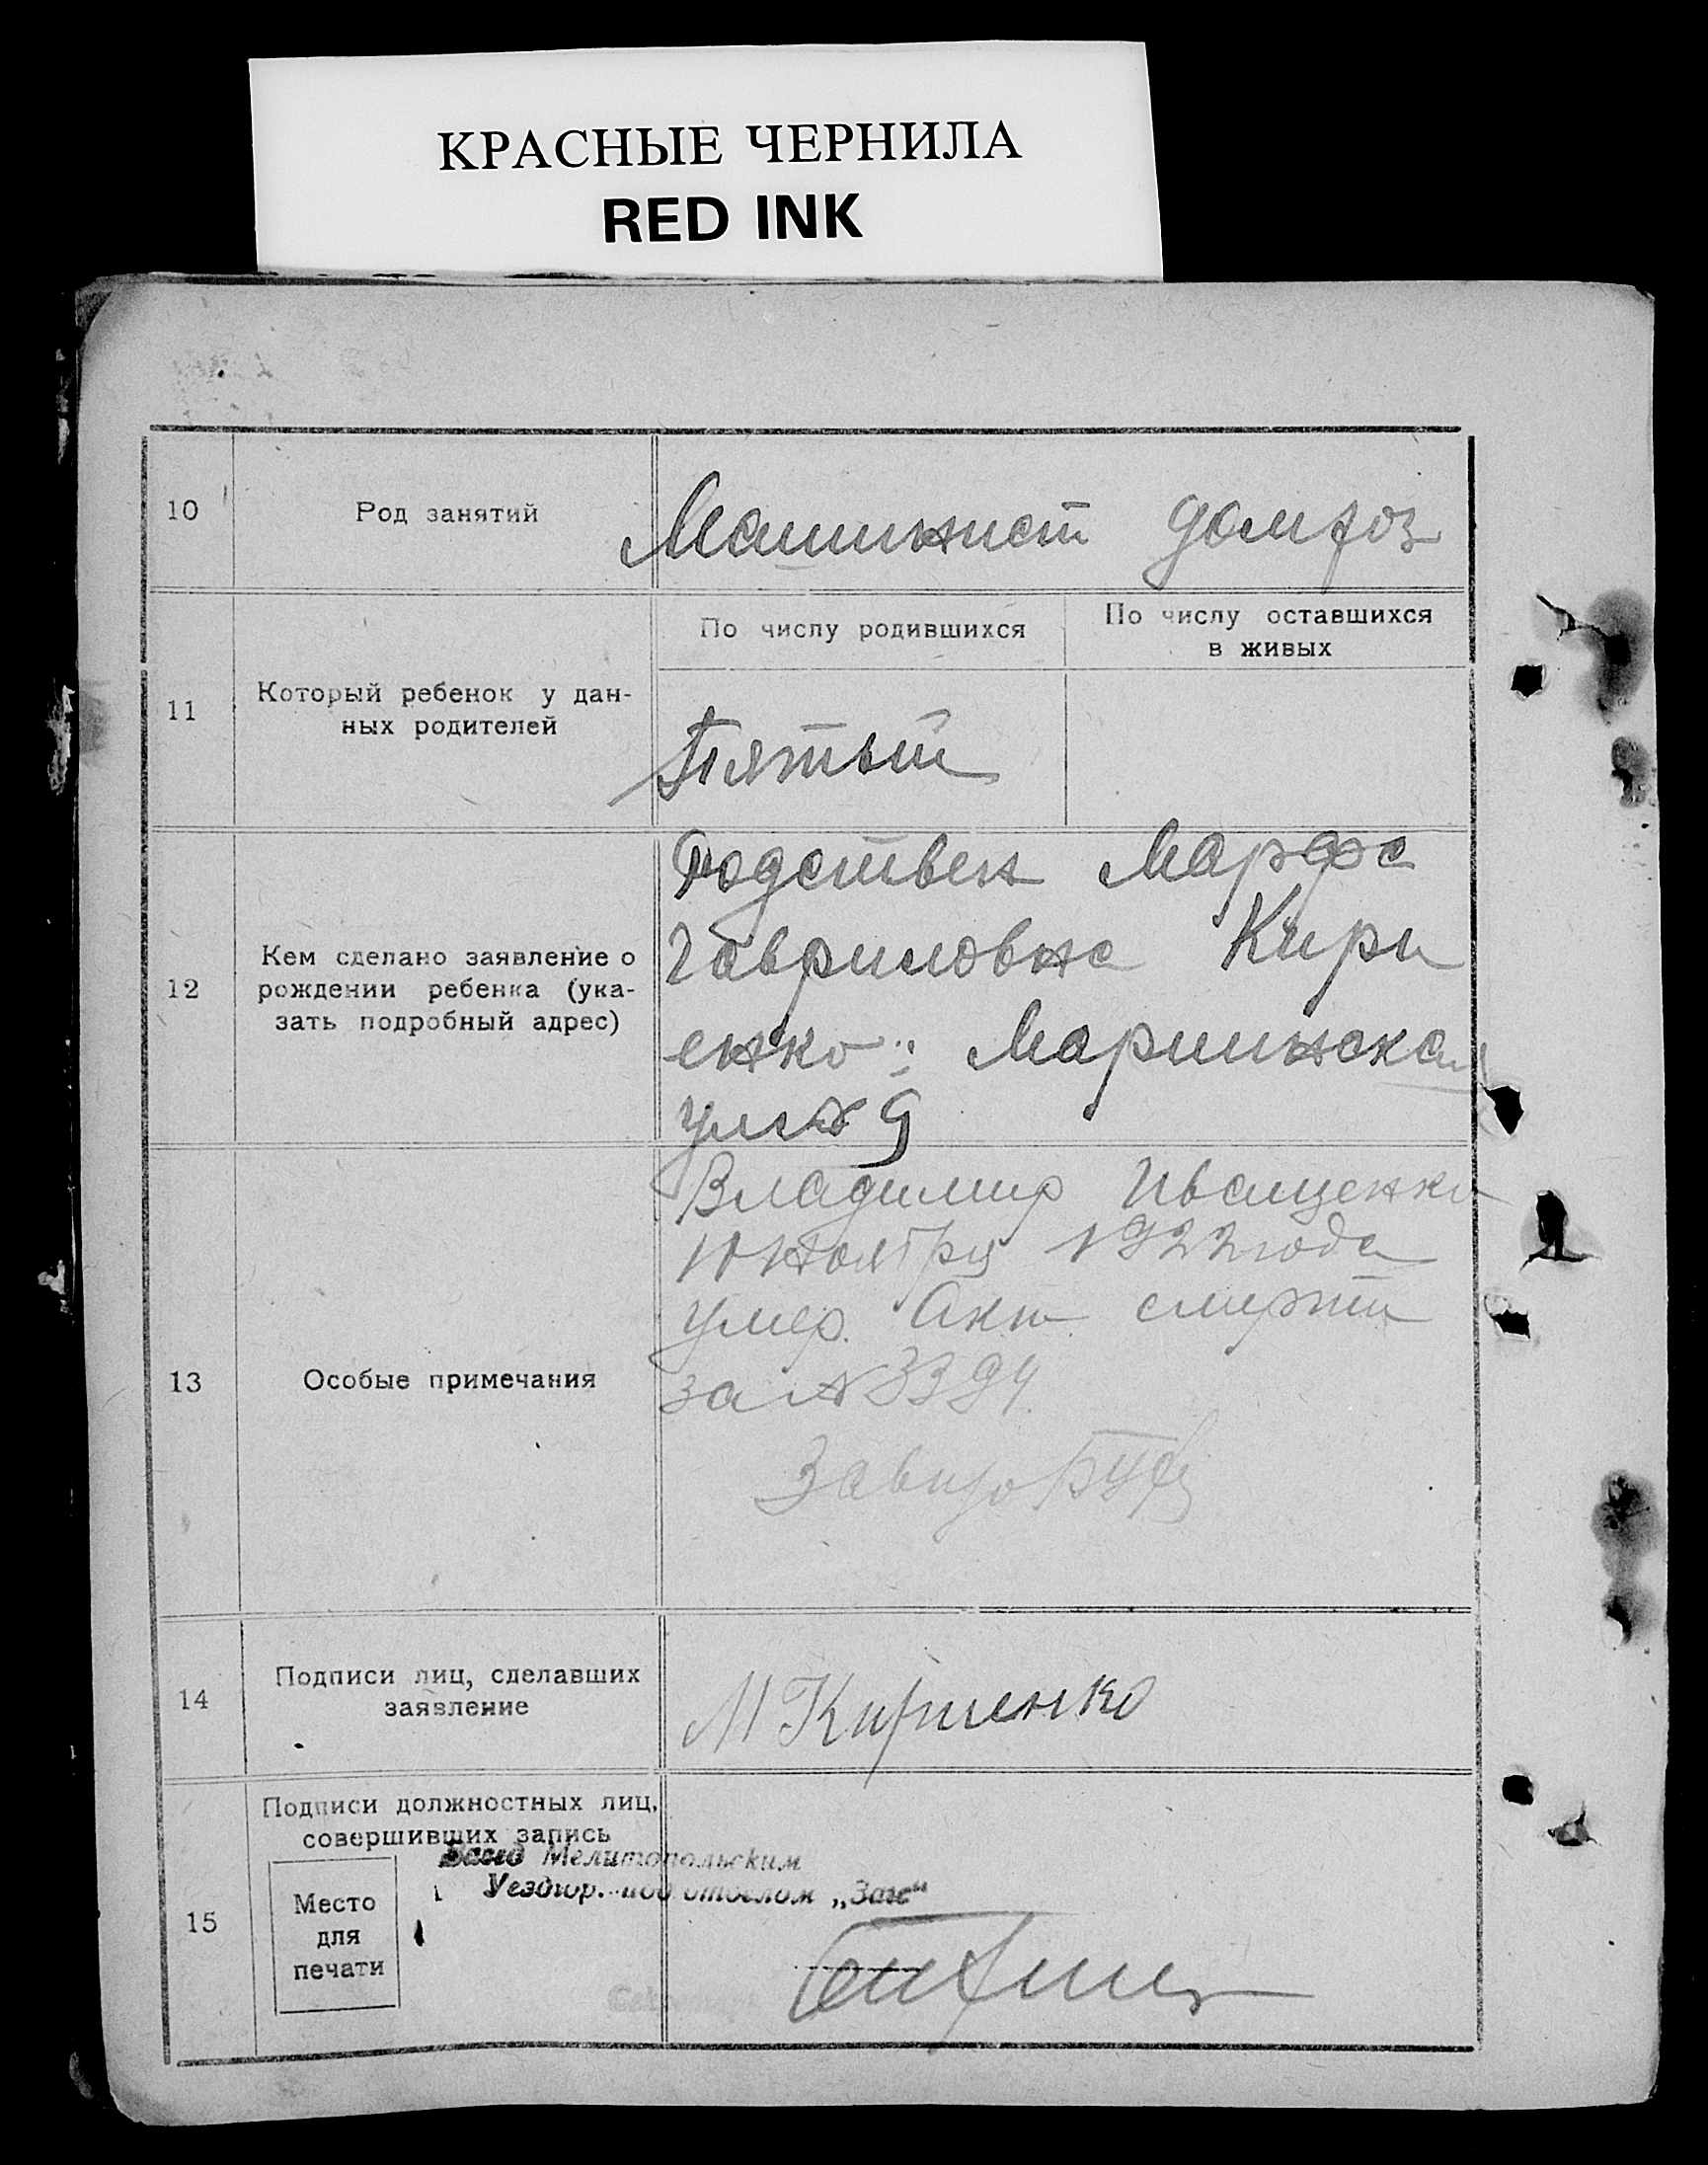 КРАСНЫЕ ЧЕРНИЛА
RED INK
10
Род занятий
Машинист домхоз
11
Который ребенок у дан-
ных родителей
По числу родившихся
По числу оставшихся
в живых
Пятый
12
Кем сделано заявление о
рождении ребенка (ука-
зать подробный адрес)
Родствен Марфа
Гавриловна Кири
енко: Мариинская
ул № 9
13
Особые примечания
Владимир Иващенко
10 Ноября 1922 года
умер. Акт смерти
за № 3394.
14
Подписи лиц, сделавших
заявление
М Кириенко
15
Подписи должностных лиц,
совершивших запись
Место
для
печати
Завед Мелитопольским
Уездгор. под отделом „Загс“